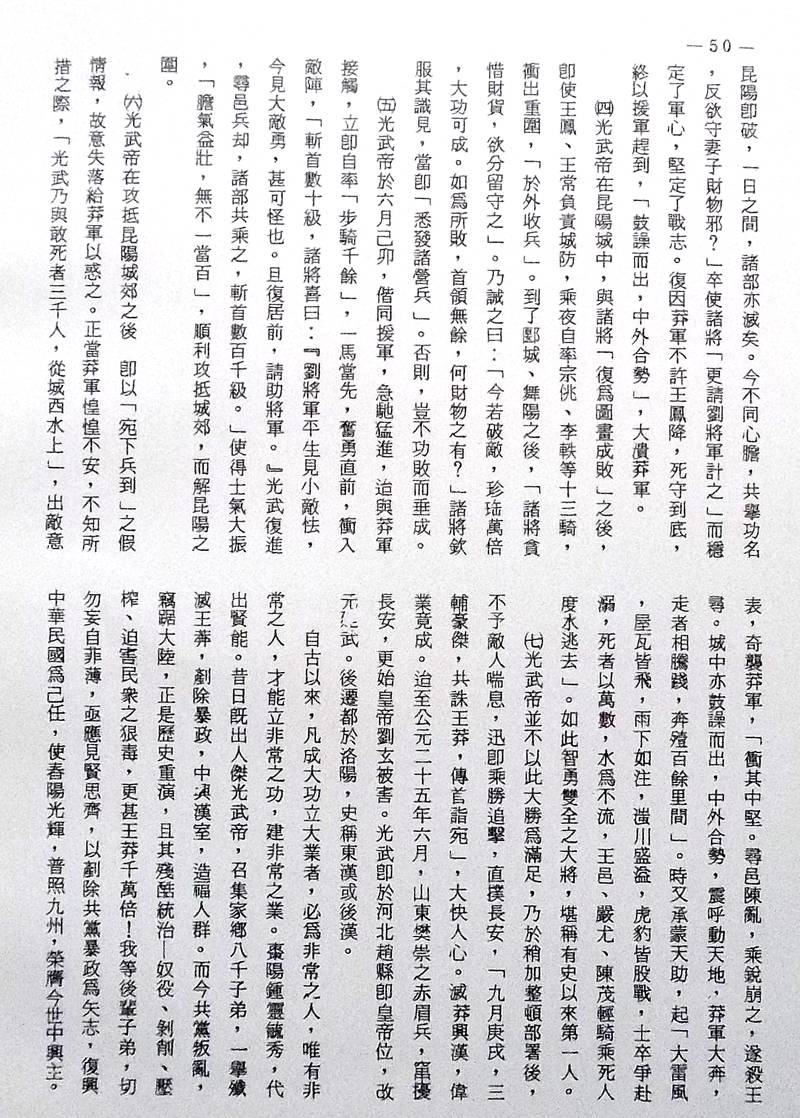 —50—
昆陽卽破，一日之間，諸部亦滅矣。今不同心膽，共舉功名
，反欲守妻子財物邪？」卒使諸將「更請劉將軍計之」而穩
定了軍心，堅定了戰志。復因莽軍不許王鳳降，死守到底，
終以援軍趕到，「鼓譟而出，中外合勢」，大潰莽軍。
㈣光武帝在昆陽城中，與諸將「復爲圖畫成敗」之後，
卽使王鳳、王常負責城防，乘夜自率宗佻、李軼等十三騎，
衝出重圍，「於外收兵」。到了郾城、舞陽之後，「諸將貪
惜財貨，欲分留守之」。乃誠之曰：「今若破敵，珍珤萬倍
，大功可成。如爲所敗，首領無餘，何財物之有？」諸將欽
服其識見，當卽「悉發諸營兵」。否則，豈不功敗而垂成。
㈤光武帝於六月己卯，偕同援軍，急馳猛進，迨與莽軍
接觸，立卽自率「步騎千餘」，一馬當先，奮勇直前，衝入
敵陣，「斬首數十級，諸將喜曰：『劉將軍平生見小敵怯，
今見大敵勇，甚可怪也。且復居前，請助將軍。』光武復進
，尋邑兵却，諸部共乘之，斬首數百千級。」使得士氣大振
，「膽氣益壯，無不一當百」，順利攻抵城郊，而解昆陽之
圍。
㈥光武帝在攻抵昆陽城郊之後　卽以「宛下兵到」之假
情報，故意失落給莽軍以惑之。正當莽軍惶惶不安，不知所
措之際，「光武乃與敢死者三千人，從城西水上」，出敵意
表，奇襲莽軍，「衝其中堅。尋邑陳亂，乘銳崩之，遂殺王
尋。城中亦鼓譟而出，中外合勢，震呼動天地，莽軍大奔，
走者相騰踐，奔殪百餘里間」。時又承蒙天助，起「大雷風
，屋瓦皆飛，雨下如注，滍川盛溢，虎豹皆股戰，士卒爭赴
溺，死者以萬數，水爲不流，王邑、嚴尤、陳茂輕騎乘死人
度水逃去」。如此智勇雙全之大將，堪稱有史以來第一人。
㈦光武帝並不以此大勝爲滿足，乃於稍加整頓部署後，
不予敵人喘息，迅卽乘勝追擊，直撲長安，「九月庚戌，三
輔豪傑，共誅王莽，傳首詣宛」，大快人心。滅莽興漢，偉
業竟成。迨至公元二十五年六月，山東樊崇之赤眉兵，竄擾
長安，更始皇帝劉玄被害。光武卽於河北趙縣卽皇帝位，改
元建武。後遷都於洛陽，史稱東漢或後漢。
自古以來，凡成大功立大業者，必爲非常之人，唯有非
常之人，才能立非常之功，建非常之業。棗陽鍾靈毓秀，代
出賢能。昔日旣出人傑光武帝，召集家鄉八千子弟，一舉殲
滅王莽，剷除暴政，中興漢室，造福人群。而今共黨叛亂，
竊踞大陸，正是歷史重演，且其殘酷統治—奴役、剝削、壓
榨、迫害民衆之狠毒，更甚王莽千萬倍！我等後輩子弟，切
勿妄自非薄，亟應見賢思齊，以剷除共黨暴政爲矢志，復興
中華民國爲己任，使春陽光輝，普照九州，榮膺今世中興主。